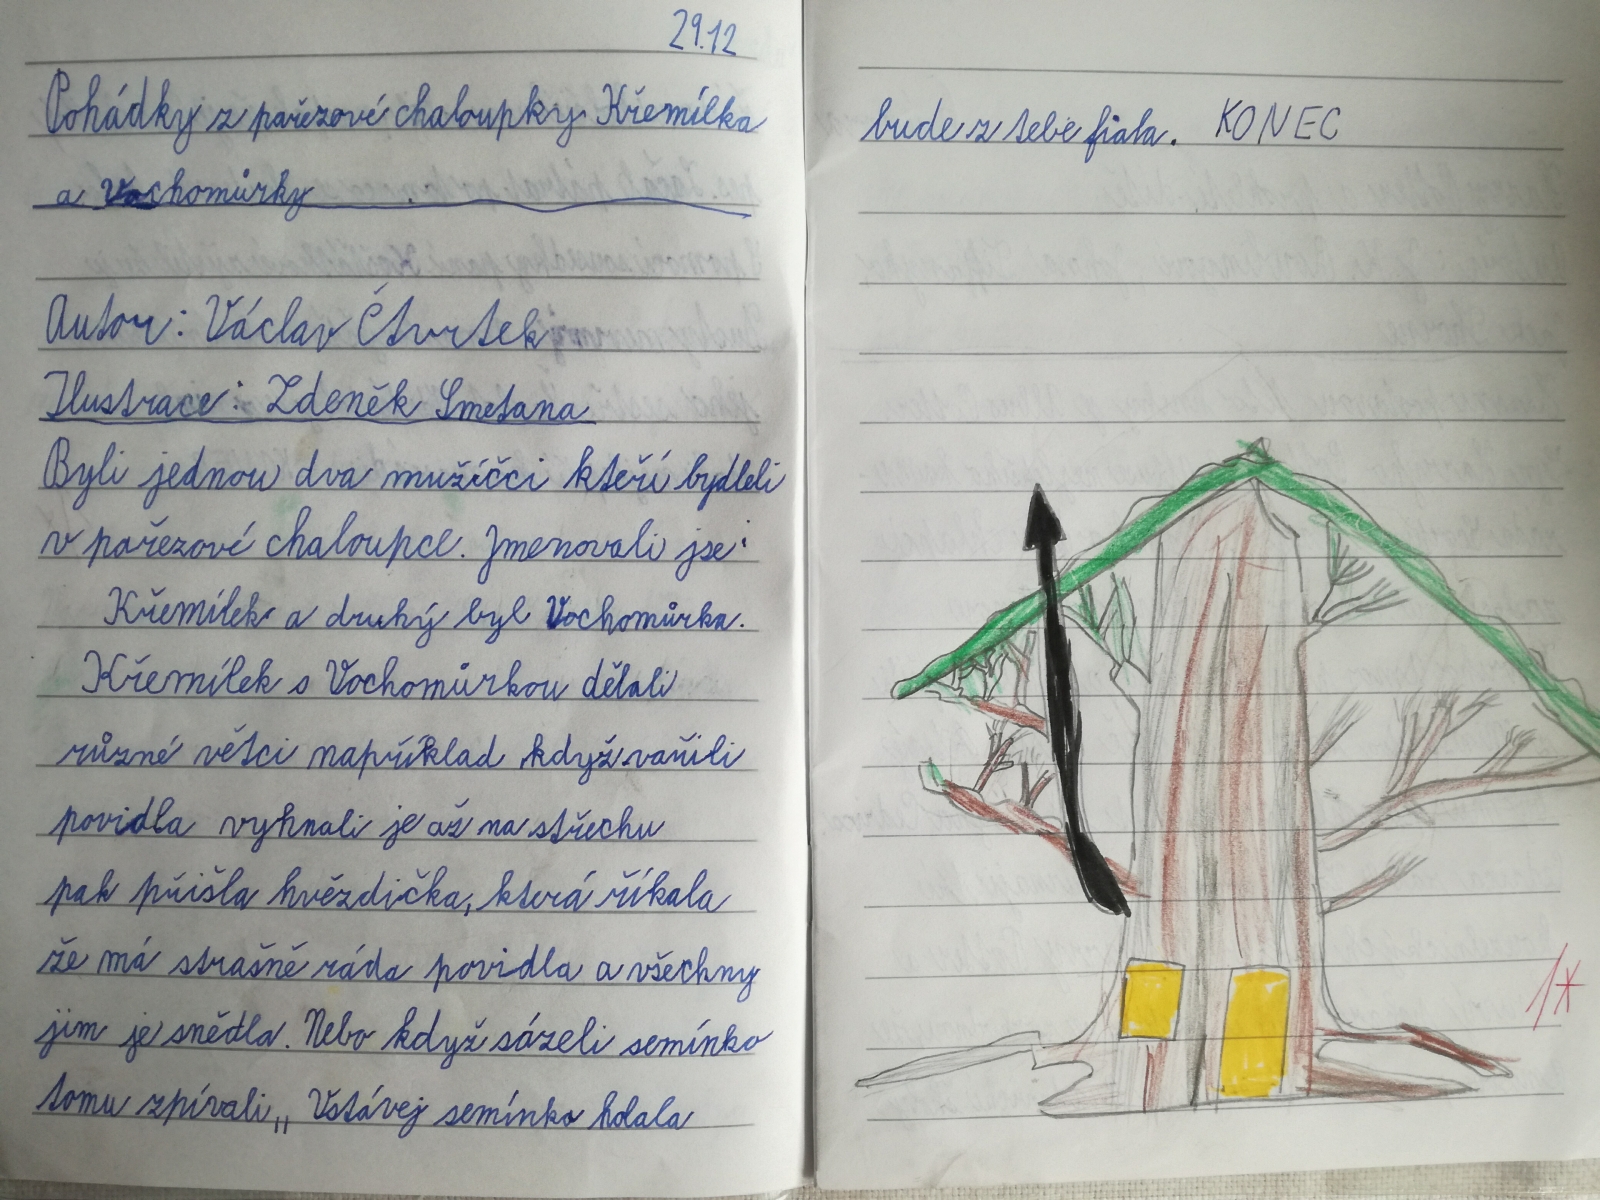 29.12
Pohádky z pařezové chaloupky Křemílka
a Vochomůrky
Autor: Václav Čtvrtek
Ilustrace: Zdeněk Smetana
Byli jednou dva mužíčci kteří bydleli
v pařezové chaloupce. Jmenovali jse:
Křemílek a druhý byl Vochomůrka.
Křemílek s Vochomůrkou dělali
různé větci například když vařili
povidla vyhnali je až na střechu
pak přišla hvězdička, která říkala
že má strašně ráda povidla a všechny
jim je snědla. Nebo když sázeli semínko
tomu zpívali,, Vstávej semínko holala
bude z tebe fiala. KONEC
1*